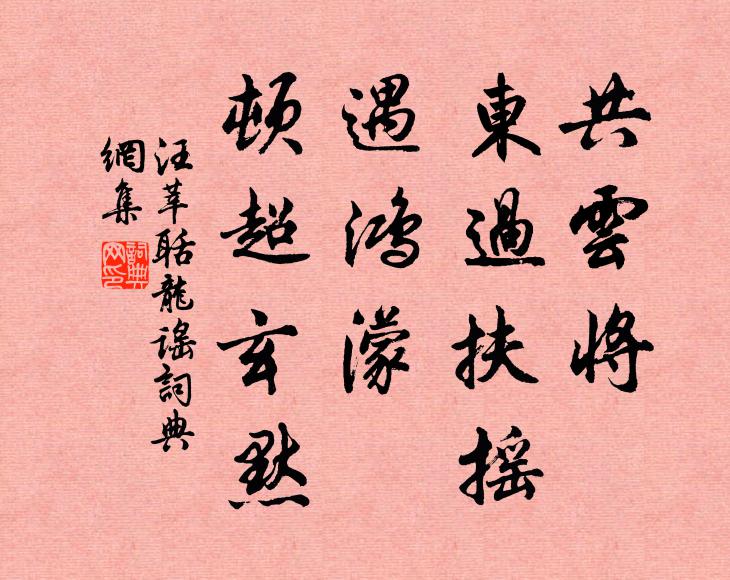 共雲將
東過扶搖
遇鴻濛
頓超玄默
汪莘聒龍謠詞典
網集
詞典網印